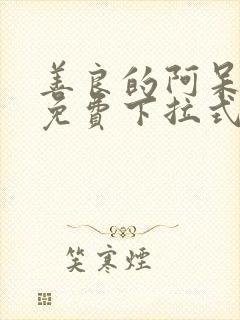 善良的阿呆
免費下拉式
笑寒煙